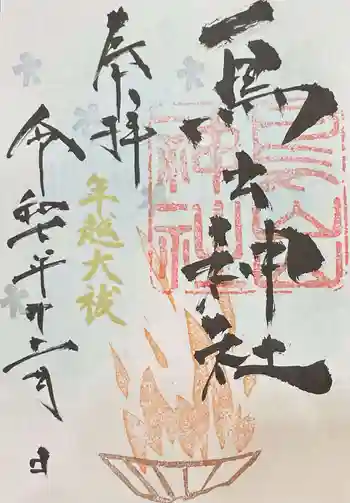 鳥出神社
奉拝
年越大祓
令和七年十二月 日
神社